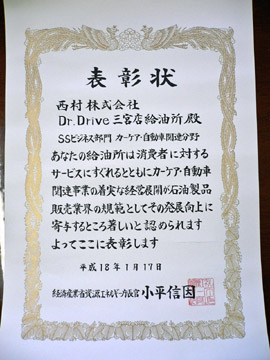 表彰状
西村株式会社
Dr.Drive三宮店給油所殿
SSビジネス部門 カーケア・自動車関連分野
あなたの給油所は消費者に対する
サービスにすぐれるとともにカーケア・自動車
関連事業の着実な経営展開が石油製品
販売業界の規範としてその発展向上に
寄与するところ著しいと認められます
よってここに表彰します
平成18年1月17日
経済産業省資源エネルギー庁長官 小平信因